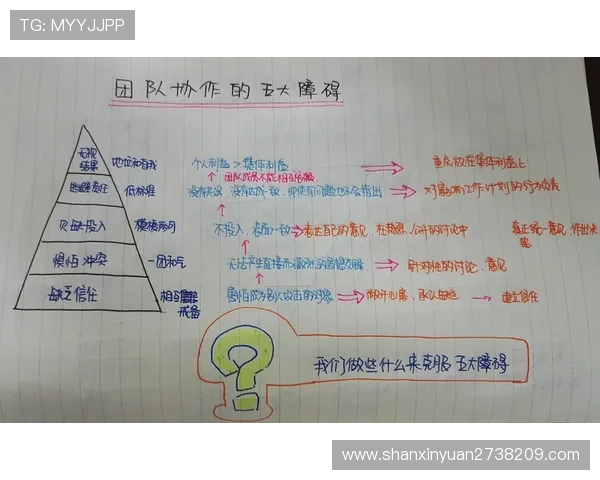 TG: MYYJJPP
团队协作的五大障碍
无视结果 地位和自我 个人利益>集体利益 重点放在集体利益上
团队成员不能相互负责
逃避责任 低标准 没有共识
欠缺投入 模棱两可 不投入,表面一致 表达自己的意见,在 公开的讨论中 真正统一意见,作出决策
惧怕冲突 一团和气 无法产生直接而激烈的思想交锋 针对性的讨论、意见
缺乏信任 相互 戒备 害怕成为别人攻击的对象 敞开心扉,承认 建立信任
我们做些什么来克服五大障碍
www.shanxinyuan2738209.com